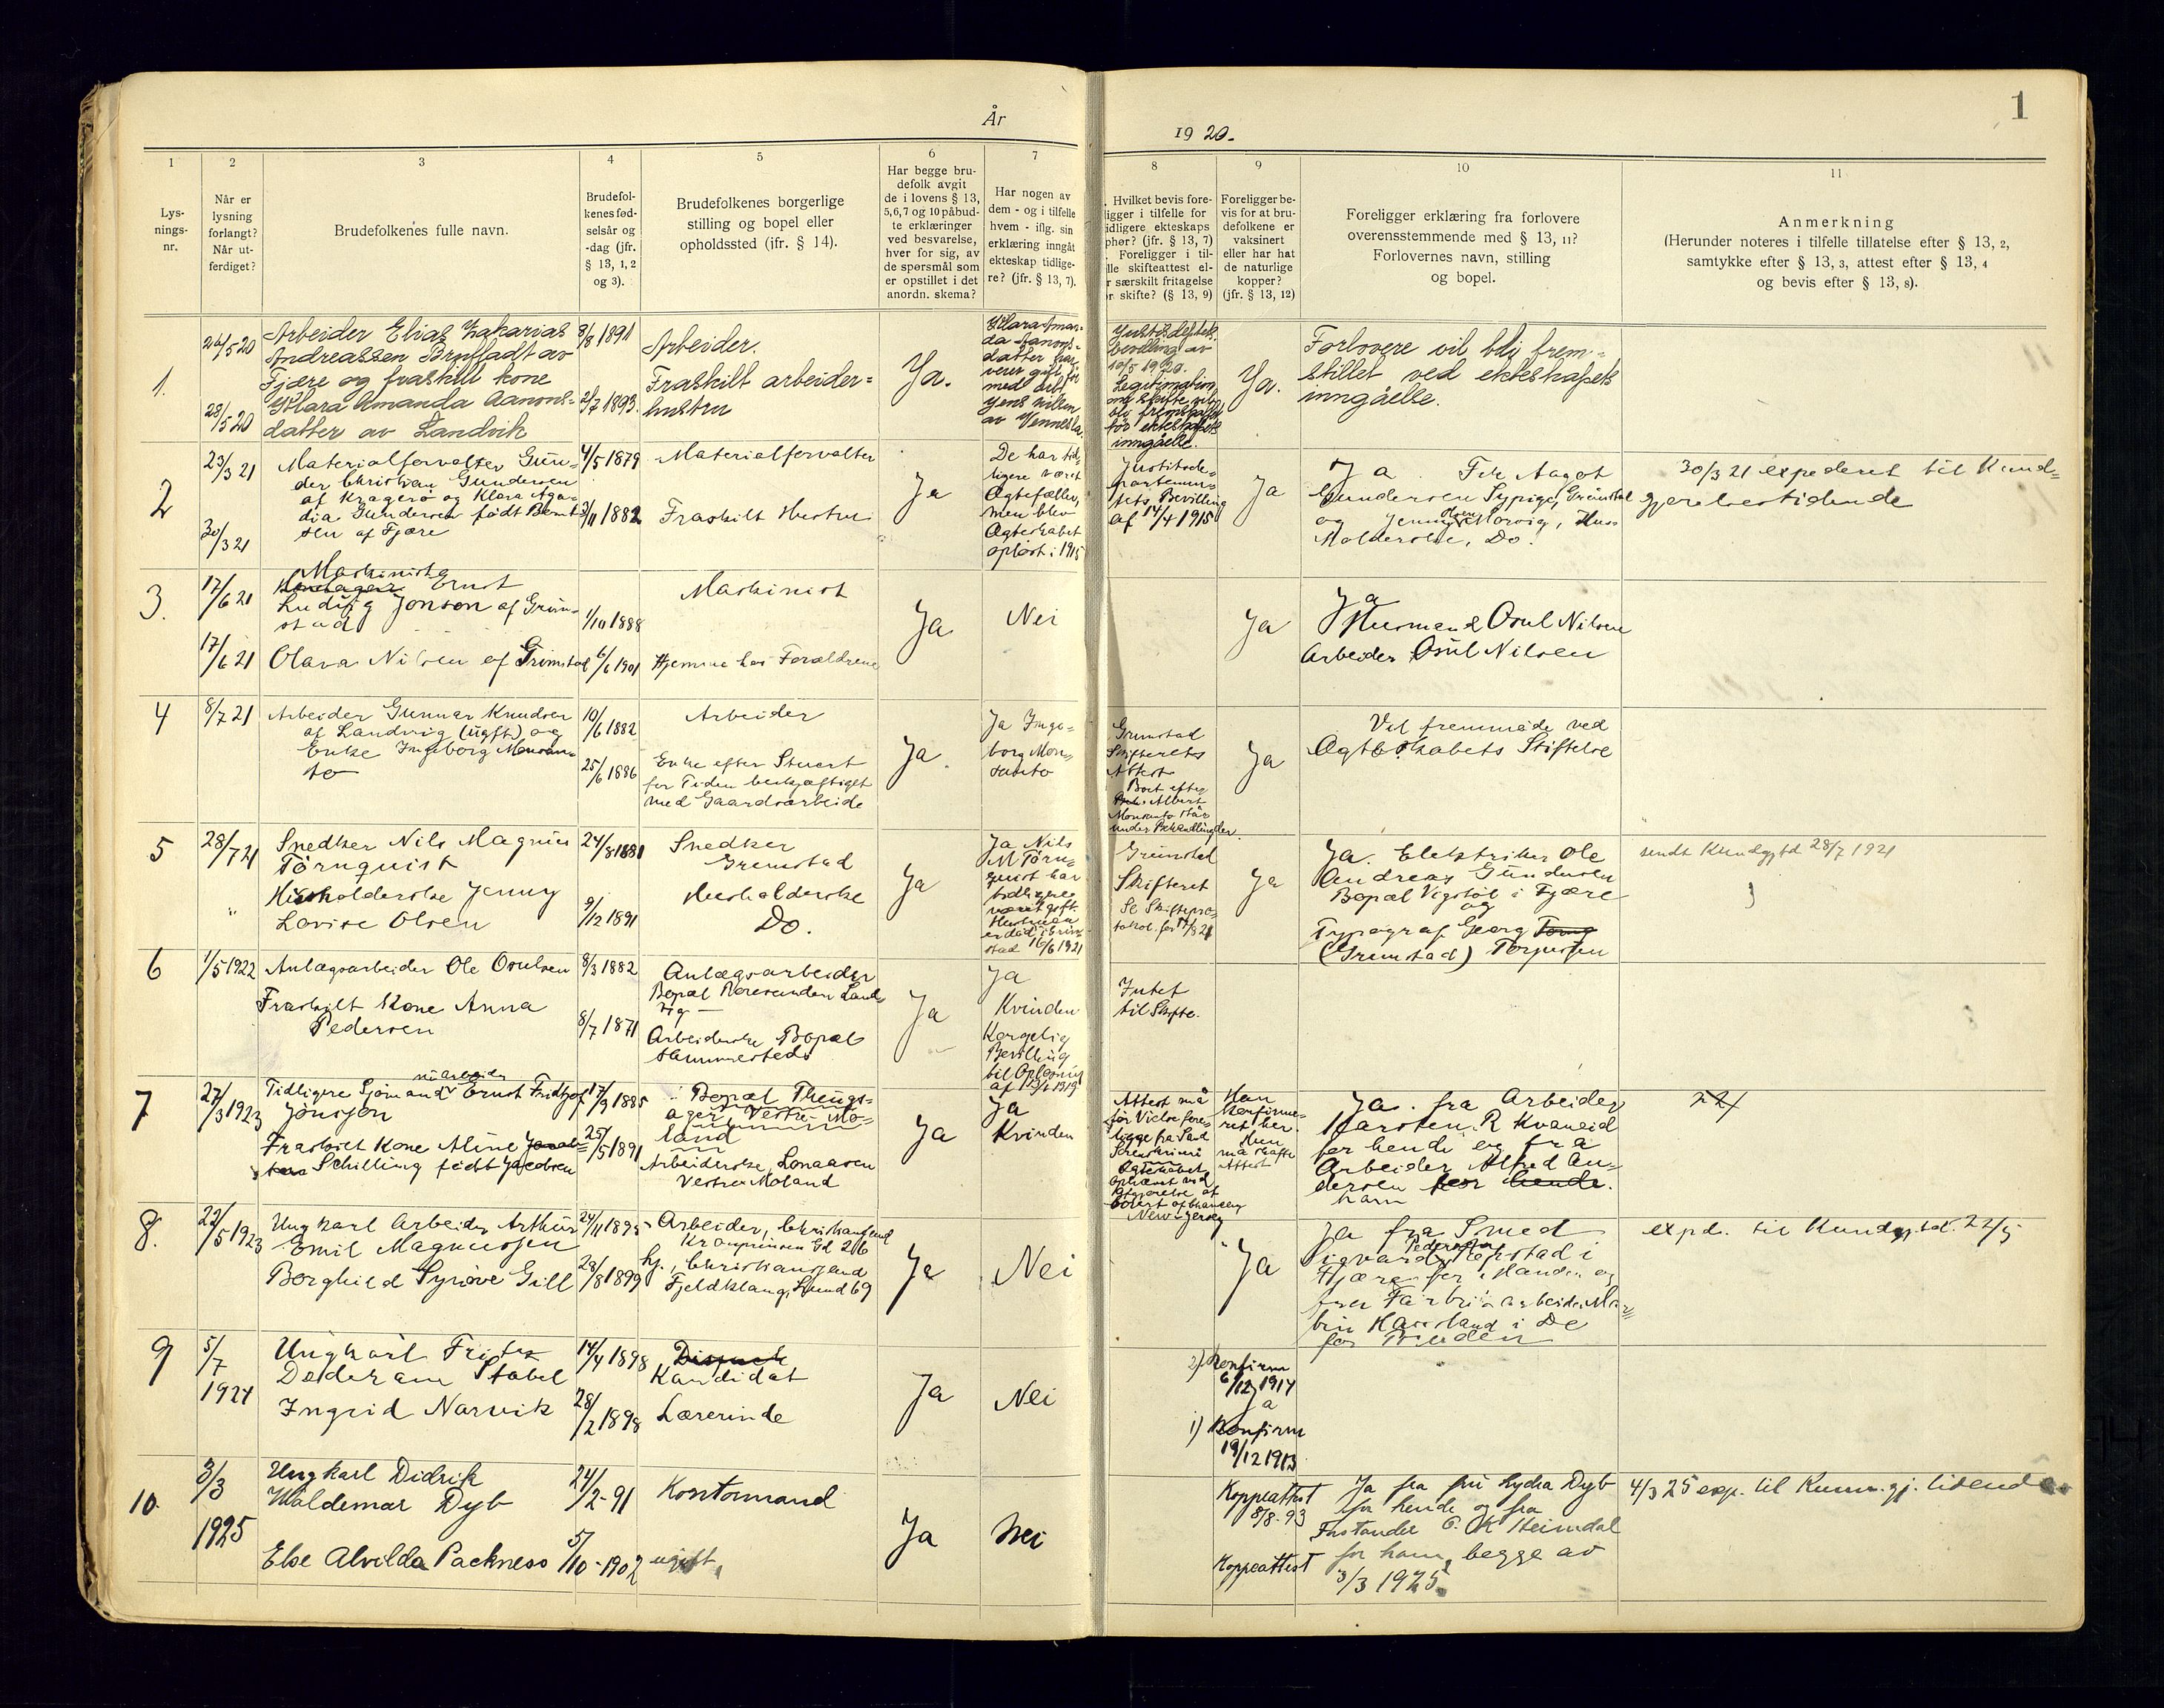 1
År
19 20.
1
Lys-
nings-
nr.
2
Når er
lysning
forlangt?
Når ut-
ferdiget?
3
Brudefolkenes fulle navn.
4
Brudefol-
kenes fød-
selsår og
-dag (jfr.
§ 13, 1, 2
og 3).
5
Brudefolkenes borgerlige
stilling og bopel eller
opholdssted (jfr. § 14).
6
Har begge bru-
defolk avgit
de i lovens § 13,
5,6,7 og 10 påbud-
te erklæringer
ved besvarelse,
hver for sig, av
de spørsmål som
er opstillet i det
anordn. skema?
7
Har nogen av
dem - og i tilfelle
hvem - iflg. sin
erklæring inngåt
ekteskap tidlige-
re? (jfr. § 13, 7).
8
Hvilket bevis fore-
ligger i tilfelle for
idligere ekteskaps
phør? (jfr. § 13, 7)
Foreligger i til-
lle skifteattest el-
r særskilt fritagelse
or skifte? (§ 13, 9)
9
Foreligger be-
vis for at bru-
defolkene er
vaksinert
eller har hat
de naturlige
kopper?
(jfr. § 13, 12)
10
Foreligger erklæring fra forlovere
overensstemmende med § 13, 11?
Forlovernes navn, stilling
og bopel.
11
Anmerkning
(Herunder noteres i tilfelle tillatelse efter § 13, 2,
samtykke efter § 13, 3, attest efter § 13, 4
og bevis efter § 13, 8).
1.
26/5 20
28/5 20
Arbeider Elias Zakarias
Andreassen Brufladt av
Fjære og fraskilt kone
Klara Amanda Aanons-
datter av Landvik
3/8 1891
2/7 1893.
Arbeider.
Fraskilt arbeider-
hustru
Ja.
Klara Aman-
da Aanons-
datter har
været gift før
med arb.
Jens Nilsen
av Vennesla.
Justisdeptets
bevilling av
10/5 1920.
Legitimation
om skifte vil
bli fremskaffet
før ekteskapets
inngåelse.
Ja.
Forlovere vil bli frem-
stillet ved ekteskapets
inngåelse.
2
23/3 21
30/3 21
Materialforvalter Gun-
der Christian Gundersen
af Kragerø og Klara Aga-
dia Gundersen født Bernt-
sen af Fjære
4/5 1879
3/11 1882
Materialforvalter
Fraskilt Hustru
Ja
De har tid-
ligere været
Ægtefæller,
men blev
Ægteskabet
opløst i 1915
Justitsde-
partemen-
tets Bevilling
af 14/4 1915
Ja
Ja Frk Aagot
Gundersen Sypige, Grimstad
og Jenny Olsen Morvig, Hus-
holderske, Do.
30/3 21 expederet til Kund-
gjørelsestidende
3.
17/6 21
17/6 21
Maskinist
Ernst
Ludvig Jonson af Grim-
stad
Olava Nilsen af Grimstad
1/10 1888
6/6 1901
Maskinist
Hjemme hos Forældrene
Ja
Nei
Ja
Ja
Husmand Osul Nilsen
Arbeider Osul Nilsen
4
8/7 21
Arbeider Gunnar Knudsen
af Landvig (ugft) og
Enke Ingeborg Monsan-
to
10/6 1882
25/6 1886
Arbeider
Enke efter Stuert
for Tiden beskjæftiget
med Gaardsarbeide
Ja.
Ja Inge-
borg Mon-
santo
Grimstad
Skifterets
Attest
Boet efter
Albert
Monsanto står
under Behandling der.
Ja
Vil fremmøde ved
Ægteskabets Stiftelse
5
28/7 21
"
Snedker Nils Magnus
Törnquist
Husholderske Jenny
Lovise Olsen
24/8 1881
9/12 1891
Snedker
Grimstad
Husholderske
Do.
Ja
Ja Nils
M Törn-
quist har
tidligere
været gift.
Hustruen
er død i Grim-
stad 16/6 1921
Grimstad
Skifteret
Se Skiftepro-
tokol for 17/3 21
Ja
Ja. Elektriker Ole
Andreas Gundersen
Bopæl Vigstøl i Fjære
og
Typograf Georg
(Grimstad) Torjussen
sendt Kundgjtd 28/7 1921
6
1/5 1922
Anlægsarbeider Ole Osulsen
Fraskilt Kone Anna
Pedersen
8/3 1882
8/7 1871
Anlægsarbeider
Bopæl Roresanden Land-
vig
Arbeiderske Bopæl
Hammersteds
Ja
Ja
Kvinden
Kongelig
Bevilling
til Opløsning
af 13/1 1919
Intet
til Skifte.
7
27/3 1923
Tidligere Sjømand nu arbeider Ernst Fridtjof
Jonsson
Fraskilt Kone Aline
Schilling født Jacobsen
17/9 1885
25/5 1891
Bopæl Theings-
ager, Vestre Mo-
land
Arbeiderske, Lonaasen
Vestre Moland
Ja
Ja
Kvinden
Attest må
før Vielse fore-
ligge fra
Ægteskabet
ophævet ved
Afgjørelse af
Court of Chancery
New-Jersey
Han
konfirme-
ret her.
Hun
må skaffe
Attest
Ja. fra Arbeider
Karsten R Kvaneid
for hende og fra
Arbeider Alfred An-
dersen for hende.
ham
8.
22/5 1923
Ungkarl Arbeider Arthur
Emil Magnussen
Borghild Synøve Gill
24/11 1895
28/8 1899
Arbeider, Christiansand
Kronprinsen Gd 26
hj., Christiansand
Fjeldklang, Lund 69
Ja
Nei
Ja
Ja fra Smed
Sigvard Pedersen
Fjære for Manden og
fra Fabrikarbeider Mar-
tin Kaosland i Do
for Bruden
expd. til Kundgjtd. 22/5
9
5/7
1924
Ungkarl Fritz
Dederam Stabel
Ingrid Narvik
14/4 1898
28/2 1898
Kandidat
Lærerinde
Ja
Nei
2) Konfirm
6/12 1914
Ja
1) Konfirm
19/12 1913
10.
3/3
1925
Ungkarl Didrik
Waldemar Dyb
Else Alvilda Packness
24/2-91
5/10-1902
Kontormand
ugift,
Ja
Nei
Koppeattest
8/8-93
Koppeattest
Ja fra fru Lydia Dyb
for hende og fra
Forstander O. K Heimdal
for ham, begge av
3/3 1925.
4/3 25 exp. til Kunn.gj. tidende